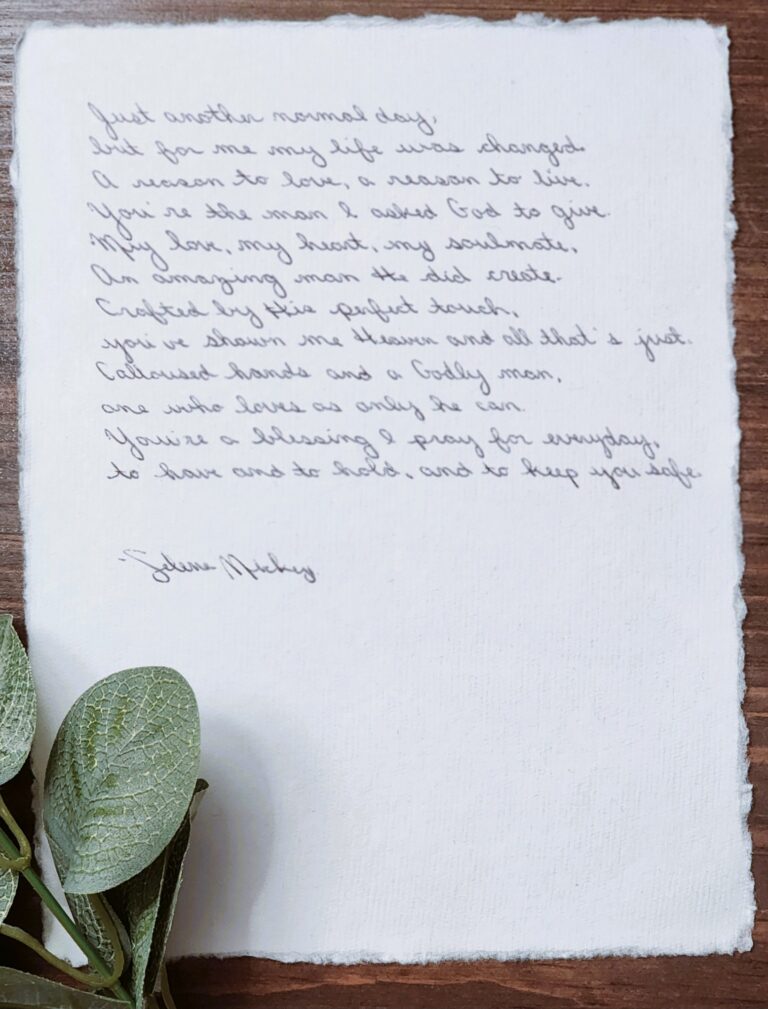 Just another normal day,
but for me my life was changed.
A reason to love, a reason to live.
You're the man I asked God to give.
My love, my heart, my soulmate,
An amazing man He did create.
Crafted by His perfect touch,
you've shown me Heaven and all that's just.
Calloused hands and a Godly man,
one who loves as only he can.
You're a blessing I pray for everyday,
to have and to hold, and to keep you safe.
-Selena Mickey